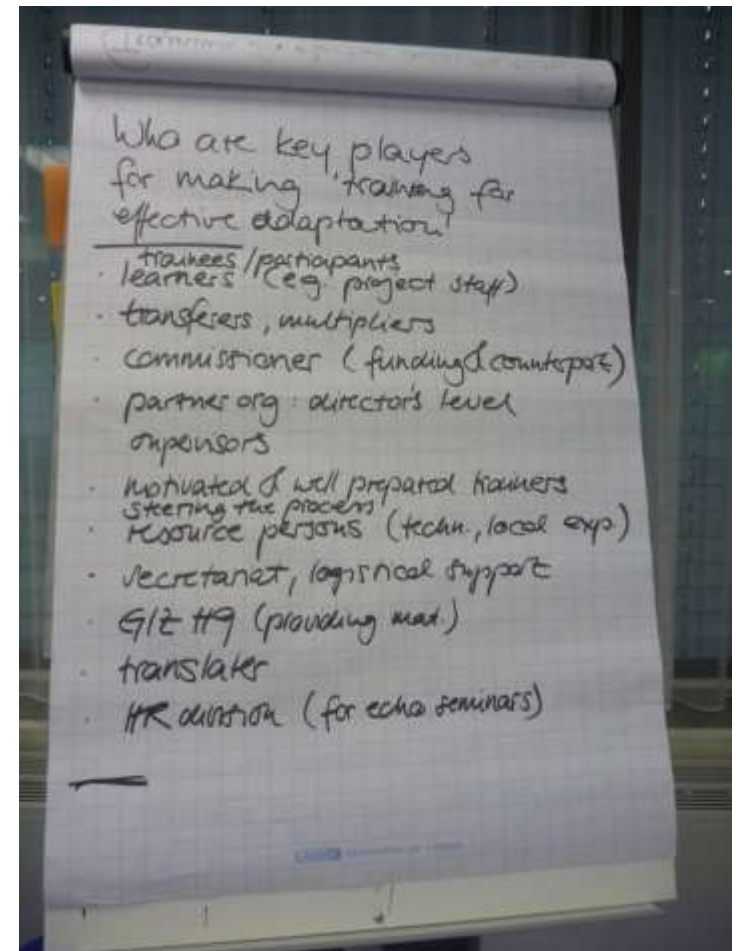 Who are key players
for making 'training for
effective adaptation'
trainees / participants
· learners (e.g. project staff)
· transferers, multipliers
· commissioner (funding & counterpart)
· partner org: director's level
sponsors
· motivated & well prepared trainers
steering the process
· resource persons (techn., local exp.)
· secretariat, logistical support
· GIZ HQ (providing mat.)
· translater
· HR division (for echo seminars)